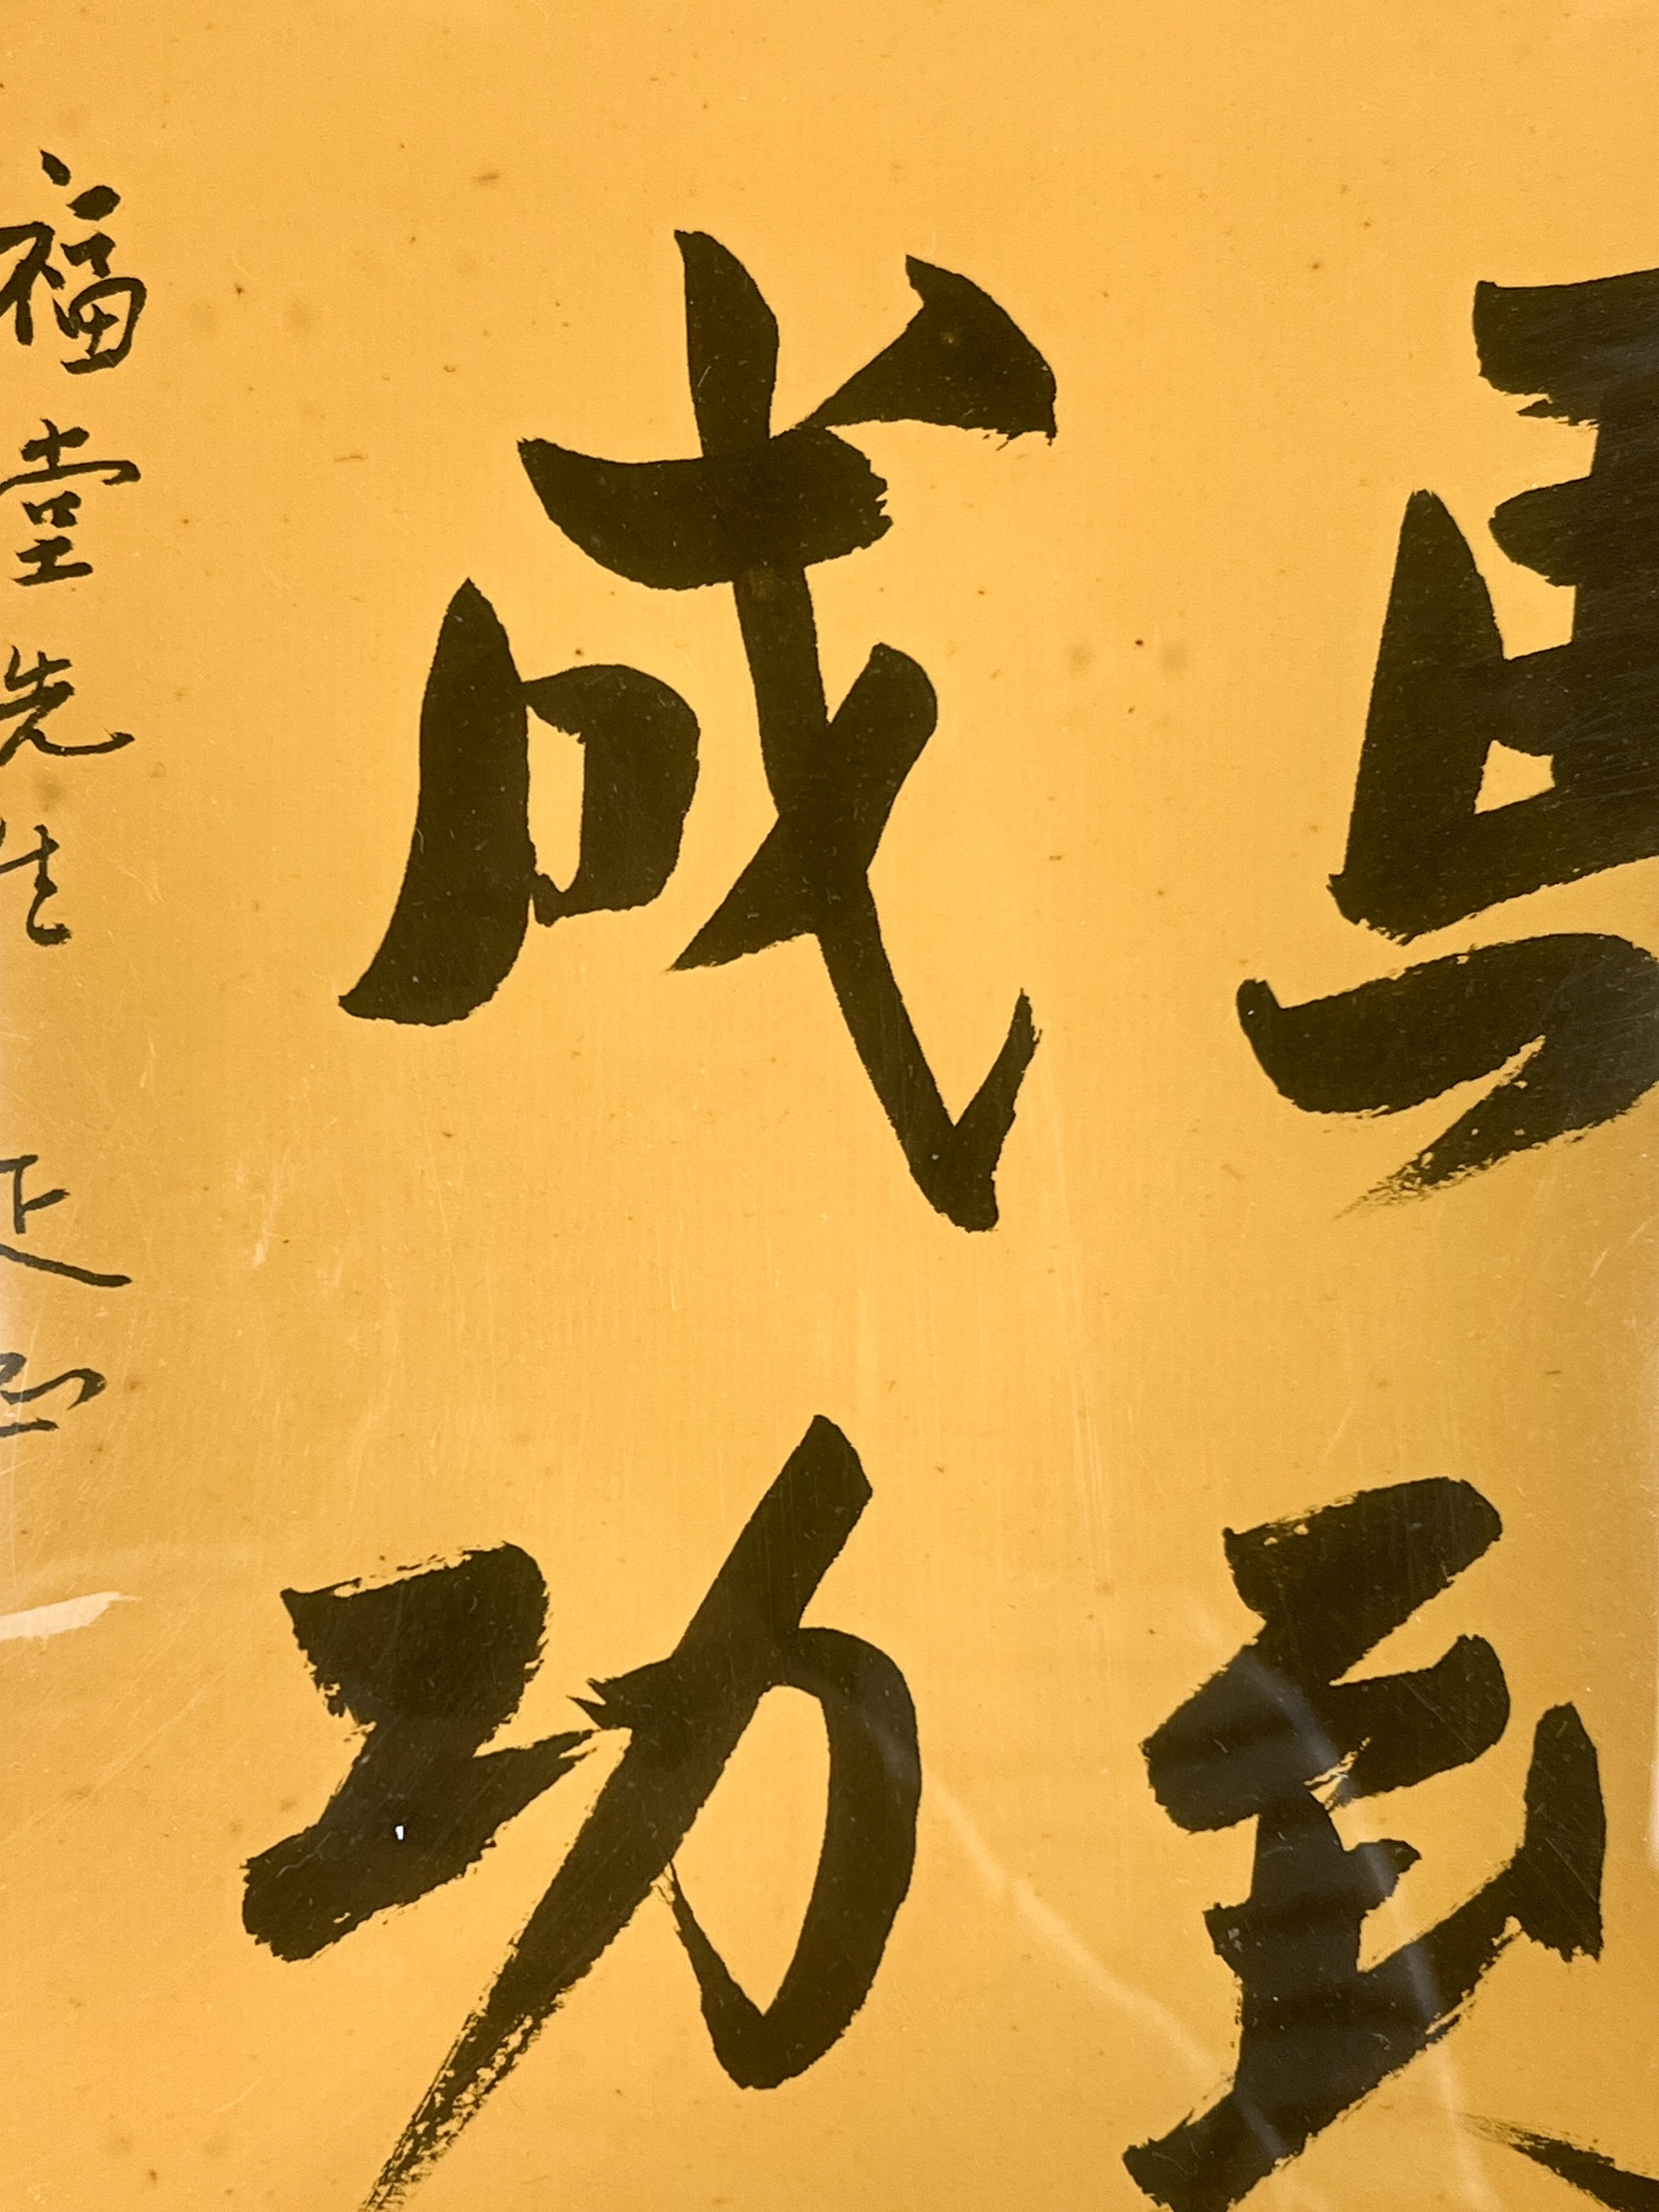 馬到
成功
福堂先生 正